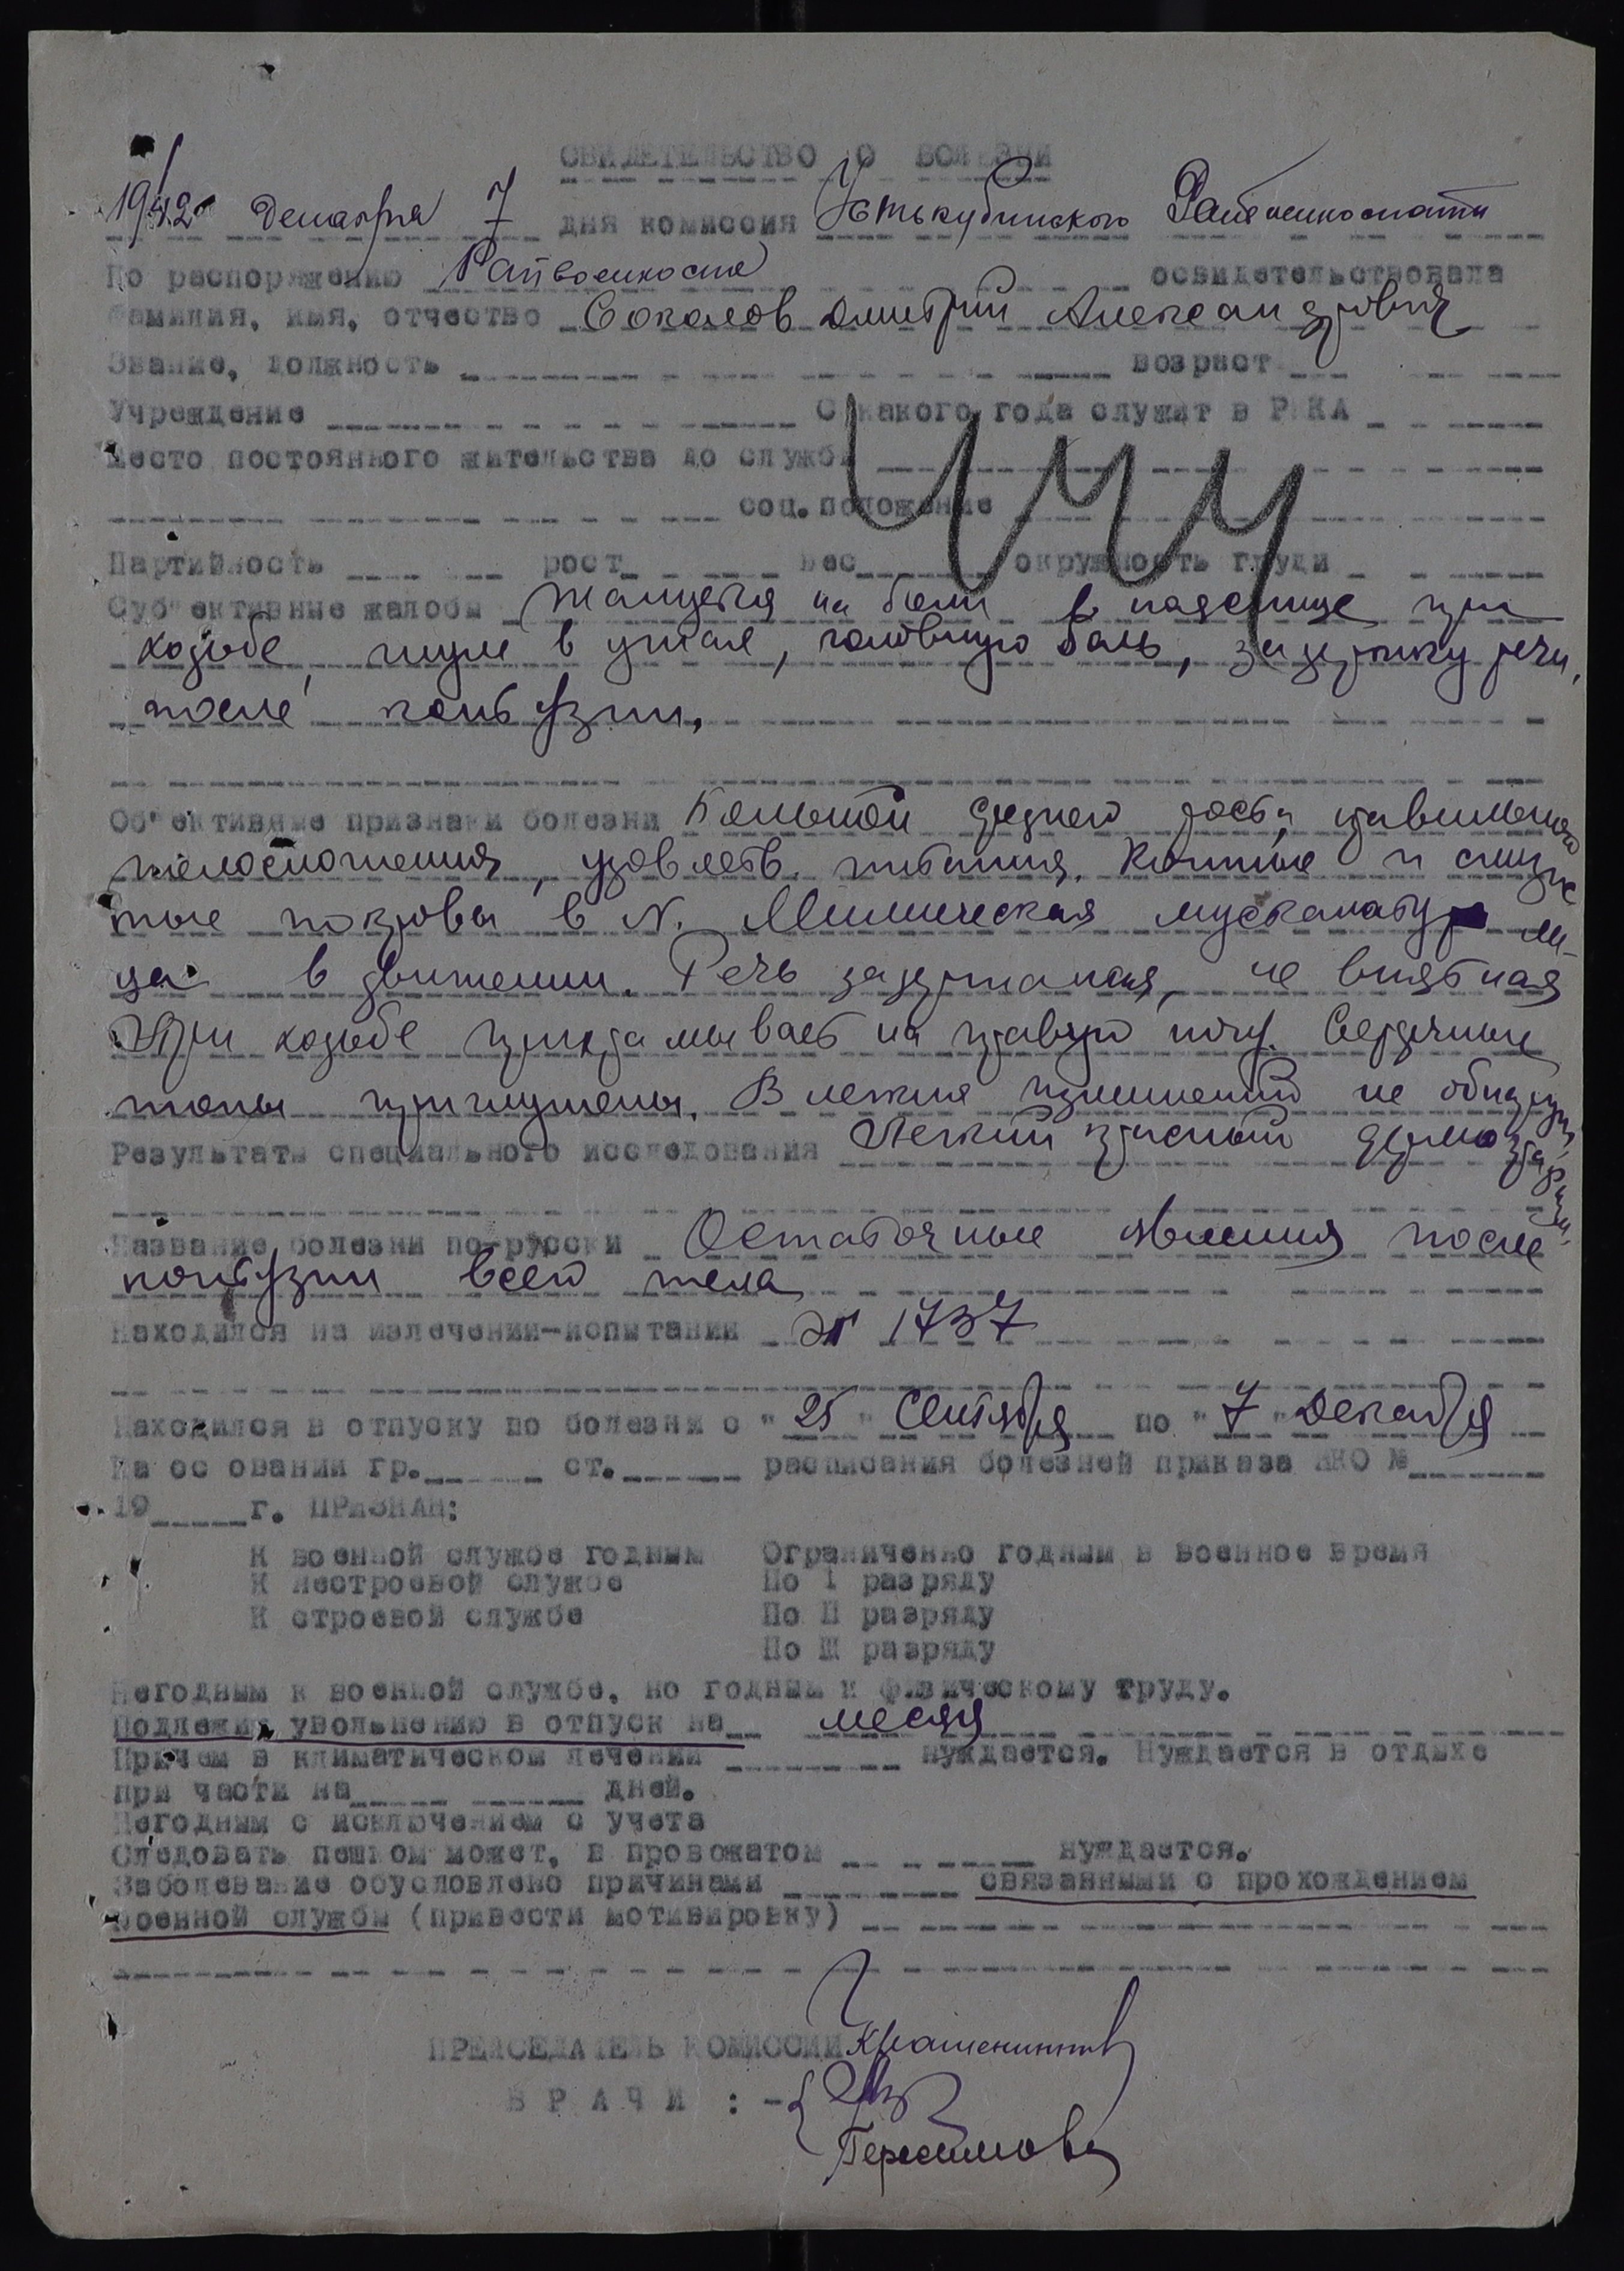 СВИДЕТЕЛЬСТВО О БОЛЕЗНИ
1942 Декабря 7 дня комиссия Устькубинского Райвоенкомата
По распоряжению Райвоенкома освидетельствовала
Фамилия, имя, отчество Соколов Дмитрий Александрович
Звание, должность возраст
Учреждение С какого года служит в РККА
Место постоянного жительства до службы
соц. положение
Партийность рост вес окружность груди
Суб"ективные жалобы Жалуется на боли в пояснице при
ходьбе, шум в ушах, головную боль, задержку речи,
после контузии.
Об"ективные признаки болезни Больной среднего роста, правильного
телосложения, удовлетв. питания. Кожные и слизис
тые покровы в N. Мимическая мускулатура ли-
ца в движении. Речь задержанная, не внятная
При ходьбе прихрамывает на правую ногу. Сердечные
тоны приглушены. В легких изменений не обнаруж.
Результаты специального исследования Легкий красный дермографизм.
Название болезни по-русски Остаточные явления после
контузии всего тела
Находился на излечении-испытании ЭГ 1737
Находился в отпуску по болезни с "25" Сентября по "7" Декабря
На основании гр. ст. расписания болезней приказа НКО №
19 г. ПРИЗНАН:
К военной службе годным Ограниченно годным в военное время
К нестроевой службе По I разряду
К строевой службе По II разряду
По III разряду
Негодным к военной службе, но годным к физическому труду.
Подлежит увольнению в отпуск на месяц
Причем в климатическом лечении нуждается. Нуждается в отдыхе
при части на дней.
Негодным с исключением с учета
Следовать пешком может, в провожатом нуждается.
Заболевание обусловлено причинами связанными с прохождением
военной службы (привести мотивировку)
ПРЕДСЕДАТЕЛЬ КОМИССИИ Крашенинников
ВРАЧИ : -
Герасимова